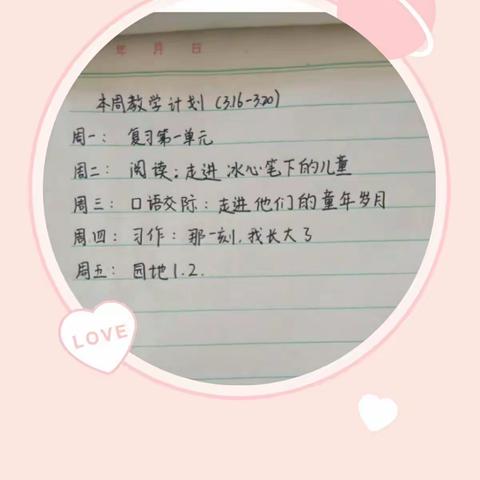 年 月 日
本周教学计划（3.16-3.20）
周一：复习第一单元
周二：阅读：走进冰心笔下的儿童
周三：口语交际：走进他们的童年岁月
周四：习作：那一刻，我长大了
周五：园地1.2.
LOVE